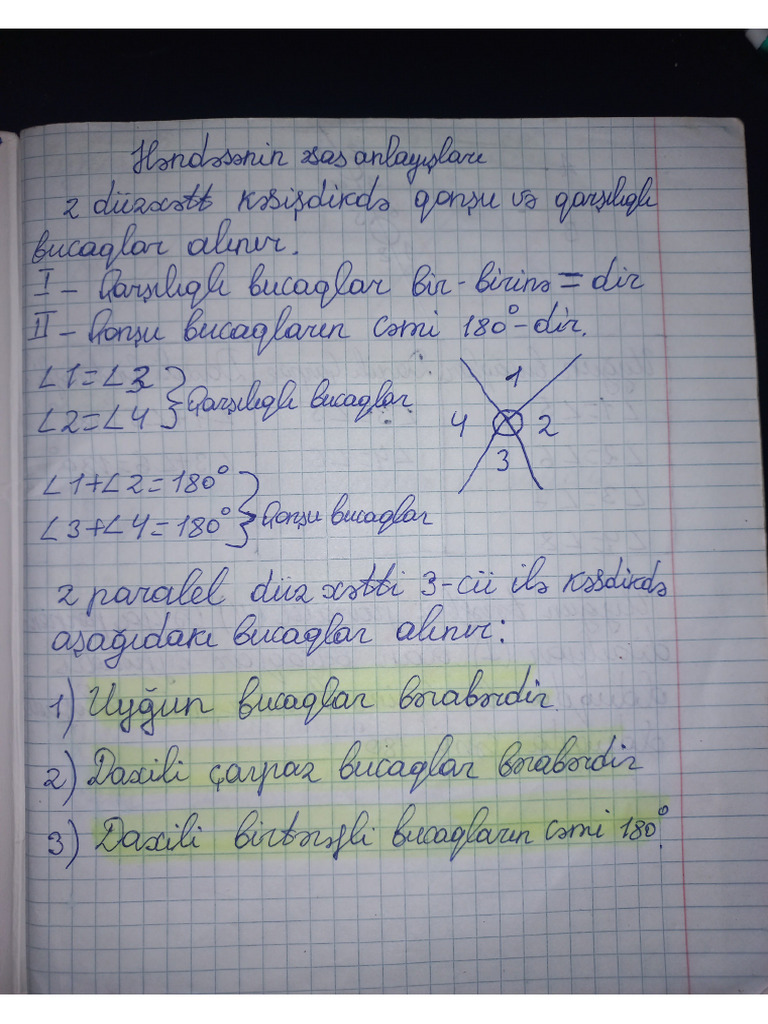 Həndəsənin əsas anlayışları
2 düzxətt kəsişdikdə qonşu və qarşılıqlı
bucaqlar alınır.
I - Qarşılıqlı bucaqlar bir-birinə = dir
II - Qonşu bucaqların cəmi 180°-dir.
∠1=∠3
∠2=∠4 } Qarşılıqlı bucaqlar
1
4 2
3
∠1+∠2=180°
∠3+∠4=180° } Qonşu bucaqlar
2 paralel düz xətti 3-cü ilə kəsdikdə
aşağıdakı bucaqlar alınır:
1) Uyğun bucaqlar bərabərdir
2) Daxili çarpaz bucaqlar bərabərdir
3) Daxili birtərəfli bucaqların cəmi 180°.